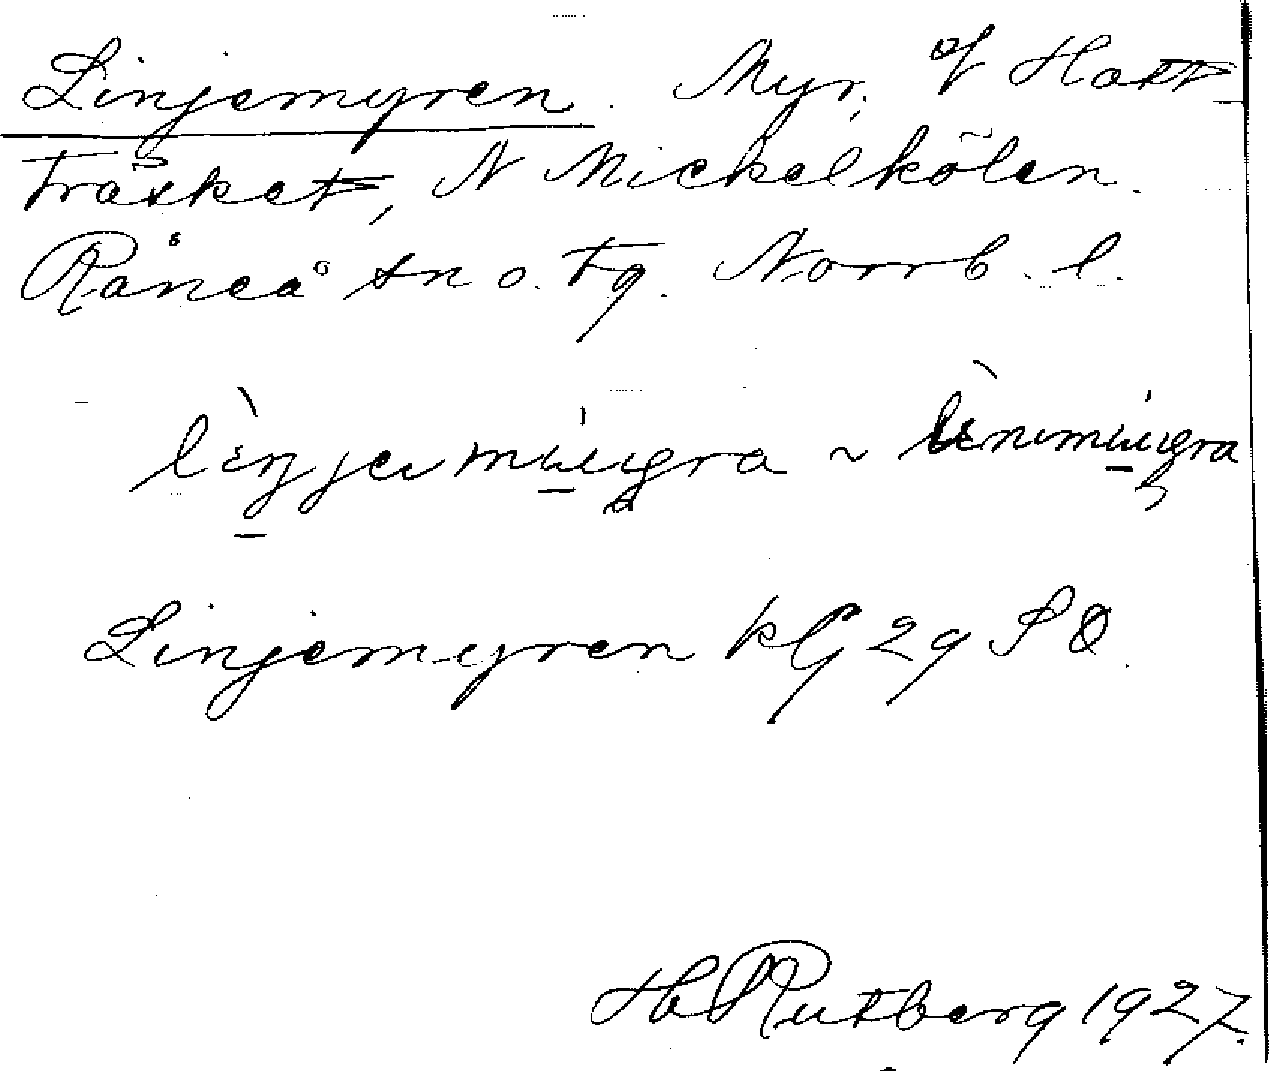 Linjemyren. Myr, Ö Hatt-
träsket, N Mickelkölen.
Råneå sn o. tg. Norrb. l.
lìnjemuigra ~ lìnimuigra
Linjemyren kG 29 SO
H. Rutberg 1927.